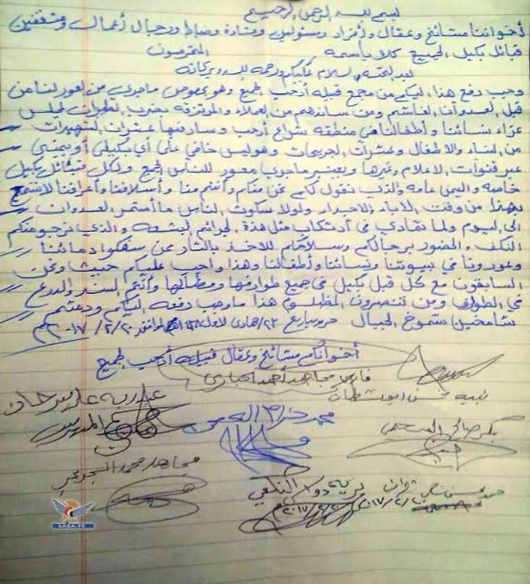 بسم الله الرحمن الرحيم
أخواننا مشائخ وعقال وأفراد ومسئولين وقادة وضباط ورجال أعمال ومثقفين
قبائل بكيل الجميع كلا باسمه المحترمون
بعد التحية السلام عليكم ورحمة الله وبركاته
وجب دفع هذا إليكم من مجمع قبيلة أرحب جميع وهو بخصوص ماجرى من
قبل العدوان الغاشم ومن ساندهم من العملاء والمرتزقة بضرب الطيران لمجلس
عزاء نسائنا وأطفالنا في منطقة شراع أرحب وسادفها عشرات الشهيدات
من النساء والأطفال وعشرات الجريحات وهو ليس خافي على أي بكيلي أو يمني
عبر قنوات الإعلام وغيرها ويعتبر ماجرى للناس الجميع ولكل قبائل بكيل
خاصة واليمن عامة والذي نقول لكم نحن منكم وأنتم منا وأسلافنا وأعرافنا لا تسمح
بهذا من وقت الآباء والأجداد ولولا سكوت الناس ما أستمر العدوان
إلى اليوم ولما تمادى في أرتكاب مثل هذه الجرائم البشعة والذي نرجوه منكم
النكف والحضور برجالكم وسلاحكم للأخذ بالثأر ممن سفكوا دمائنا
في بيوتنا ونسائنا وأطفالنا وهذا واجب عليكم حيث ونحن
السابقون مع كل قبل بكيل في جميع طوارفها ومطالبها وأنتم السند والدرع
في الطوارف ومن تنصرون المظلوم هذا ماوجب دفعه إليكم ودمتم
شامخين شموخ الجبال حرر بتاريخ ٢٣/جمادى الأول الموافق ٢٠/٢/٢٠١٧م
أخوانكم مشائخ وعقال قبيلة أرحب جميع
فارس أحمد
نبيه محسن
محمد
بكر صالح
مجاهد محمد
SABA.YE